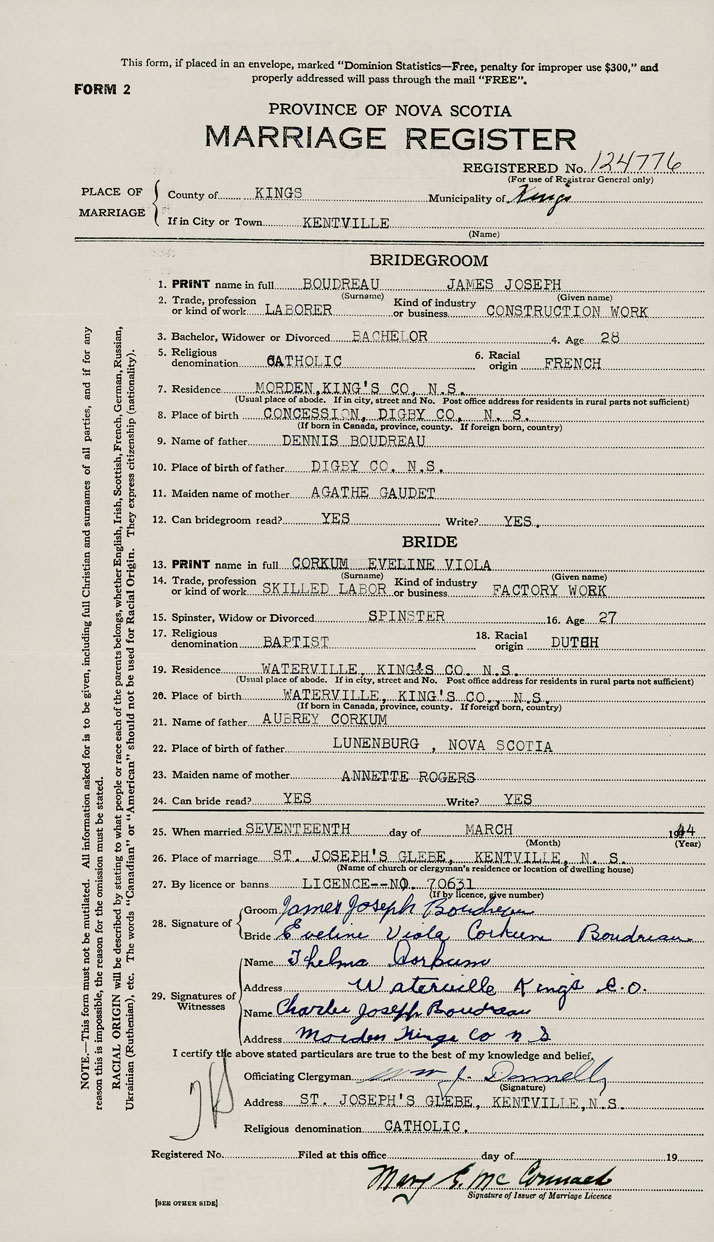 This form, if placed in an envelope, marked "Dominion Statistics—Free, penalty for improper use $300," and
properly addressed will pass through the mail "FREE".
FORM 2
PROVINCE OF NOVA SCOTIA
MARRIAGE REGISTER
REGISTERED No. 124776
(For use of Registrar General only)
PLACE OF MARRIAGE
County of KINGS Municipality of Kings
If in City or Town KENTVILLE
(Name)
BRIDEGROOM
1. PRINT name in full BOUDREAU JAMES JOSEPH
(Surname) (Given name)
2. Trade, profession or kind of work LABORER Kind of industry or business CONSTRUCTION WORK
3. Bachelor, Widower or Divorced BACHELOR 4. Age 28
5. Religious denomination CATHOLIC 6. Racial origin FRENCH
7. Residence MORDEN, KING'S CO, N.S.
(Usual place of abode. If in city, street and No. Post office address for residents in rural parts not sufficient)
8. Place of birth CONCESSION, DIGBY CO, N. S.
(If born in Canada, province, county. If foreign born, country)
9. Name of father DENNIS BOUDREAU
10. Place of birth of father DIGBY CO. N.S.
11. Maiden name of mother AGATHE GAUDET
12. Can bridegroom read? YES Write? YES.
BRIDE
13. PRINT name in full CORKUM EVELINE VIOLA
(Surname) (Given name)
14. Trade, profession or kind of work SKILLED LABOR Kind of industry or business FACTORY WORK
15. Spinster, Widow or Divorced SPINSTER 16. Age 27
17. Religious denomination BAPTIST 18. Racial origin DUTCH
19. Residence WATERVILLE, KING'S CO. N.S.
(Usual place of abode. If in city, street and No. Post office address for residents in rural parts not sufficient)
20. Place of birth WATERVILLE, KING'S CO., N.S.
(If born in Canada, province, county. If foreign born, country)
21. Name of father AUBREY CORKUM
22. Place of birth of father LUNENBURG , NOVA SCOTIA
23. Maiden name of mother ANNETTE ROGERS
24. Can bride read? YES Write? YES
25. When married SEVENTEENTH day of MARCH 1944
(Month) (Year)
26. Place of marriage ST. JOSEPH'S GLEBE, KENTVILLE, N. S.
(Name of church or clergyman's residence or location of dwelling house)
27. By licence or banns LICENCE--NO. 70631
(If by licence, give number)
28. Signature of
Groom James Joseph Boudreau
Bride Eveline Viola Corkum Boudreau
29. Signatures of Witnesses
Name Thelma Corkum
Address Waterville Kings C.O.
Name Charlie Joseph Boudreau
Address Morden Kings Co N S
I certify the above stated particulars are true to the best of my knowledge and belief,
Officiating Clergyman Wm J. Donnelly
(Signature)
Address ST. JOSEPH'S GLEBE, KENTVILLE, N.S.
Religious denomination CATHOLIC.
Registered No. Filed at this office day of 19
Mary E. McCormack
Signature of Issuer of Marriage Licence
[SEE OTHER SIDE]
NOTE.—This form must not be mutilated. All information asked for is to be given, including full Christian and surnames of all parties, and if for any
reason this is impossible, the reason for the omission must be stated.
RACIAL ORIGIN will be described by stating to what people or race each of the parents belongs, whether English, Irish, Scottish, French, German, Russian,
Ukrainian (Ruthenian), etc. The words "Canadian" or "American" should not be used for Racial Origin. They express citizenship (nationality).